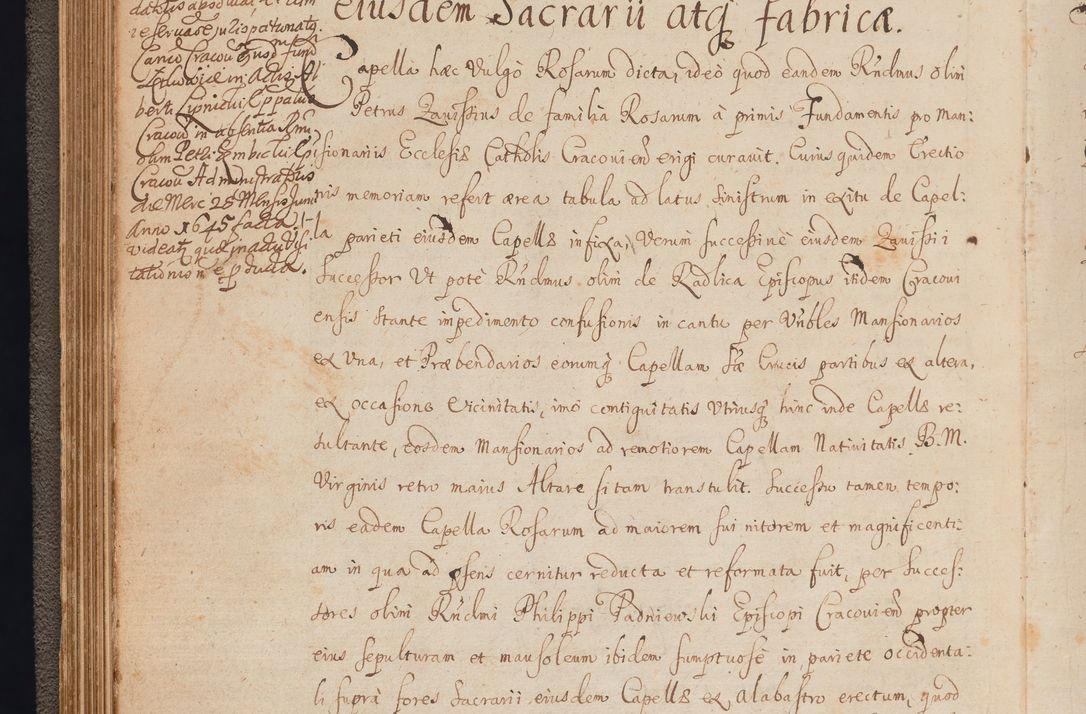 eiusdem Sacrarii atq fabricæ.
reseruatæ juris patronatq.
Cano Cracou
in Actis Al
berti Lipnicki Eppatus
Cracou in absentia Rmi
dum Petri Gembicki Epi
Cracou Administratoris
die Merc 28 Mensis Junii
Anno 1645 facta
videatq quæ in actu Visi
tationis
Capella hæc Vulgò Rosarum dicta, ideò quod eandem Rndmus olim
Petrus Zauissius de familia Rosarum à primis Fundamentis pro Man:
sionariis Ecclesiæ Cathdlis Cracouien erigi curauit. Cuius quidem Erectio
nis memoriam refert ærea tabula ad latus sinistrum in exitu de Capel:
la parieti eiusdem Capellæ infixa, Verum successiuè eiusdem Zauissii
Successor Ut potè Rndmus olim de Radlica Episcopus itidem Cracoui
ensis stante impedimento confusionis in cantu per Vnbles Mansionarios
ex Vna, et Præbendarios eorumq Capellam Stæ Crucis partibus ex altera,
ex occasione Vicinitatis, imò contiguitatis Vtriusq hinc inde Capellæ re:
sultante, eosdem Mansionarios ad remotiorem Capellam Natiuitatis B. M.
Virginis retro maius Altare sitam transtulit. Successu tamen tempo:
ris eadem Capella Rosarum ad maiorem sui nitorem et magnificenti:
am in qua ad psens cernitur reducta et reformata fuit, per Succes:
sores olim Rndmi Philippi Padniewski Episcopi Cracouien propter
eius sepulturam et mausoleum ibidem sumptuosè in pariete occidenta:
li supra fores Sacrarii eiusdem Capellæ ex alabastro erectum, quod